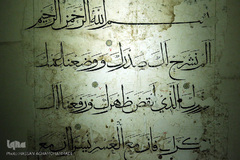 بسم الله الرحمن الرحيم
الم نشرح لك صدرك ووضعنا عنك
وزرك الذي انقض ظهرك ورفعنا لك
ذكرك فان مع العسر يسرا ان مع